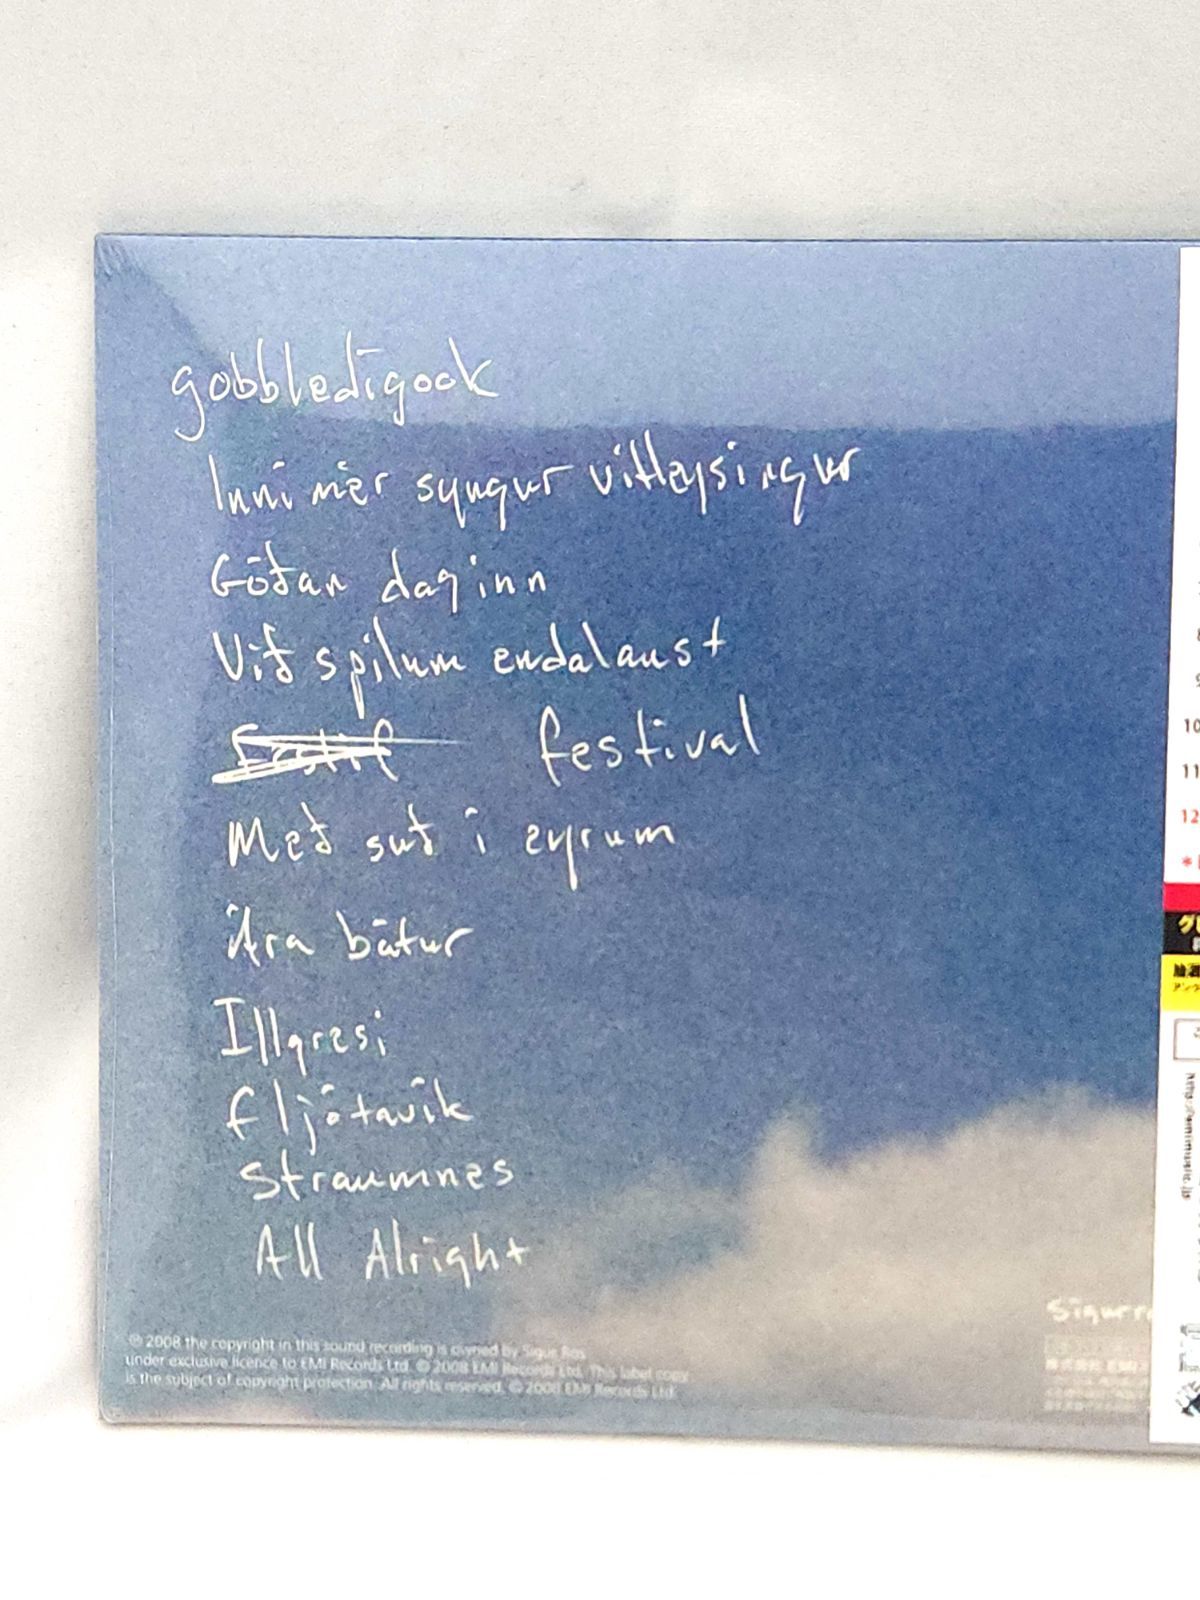 gobbledigook
Inní mér syngur vitleysingur
Góðan daginn
Við spilum endalaust
festival
Með suð í eyrum
Ára bátur
Illgresi
fljótavík
straumnes
All Alright
℗ 2008 the copyright in this sound recording is owned by Sigur Ros
under exclusive licence to EMI Records Ltd. © 2008 EMI Records Ltd. This label copy
is the subject of copyright protection. All rights reserved. © 2008 EMI Records Ltd.
sigurr
10
11
12